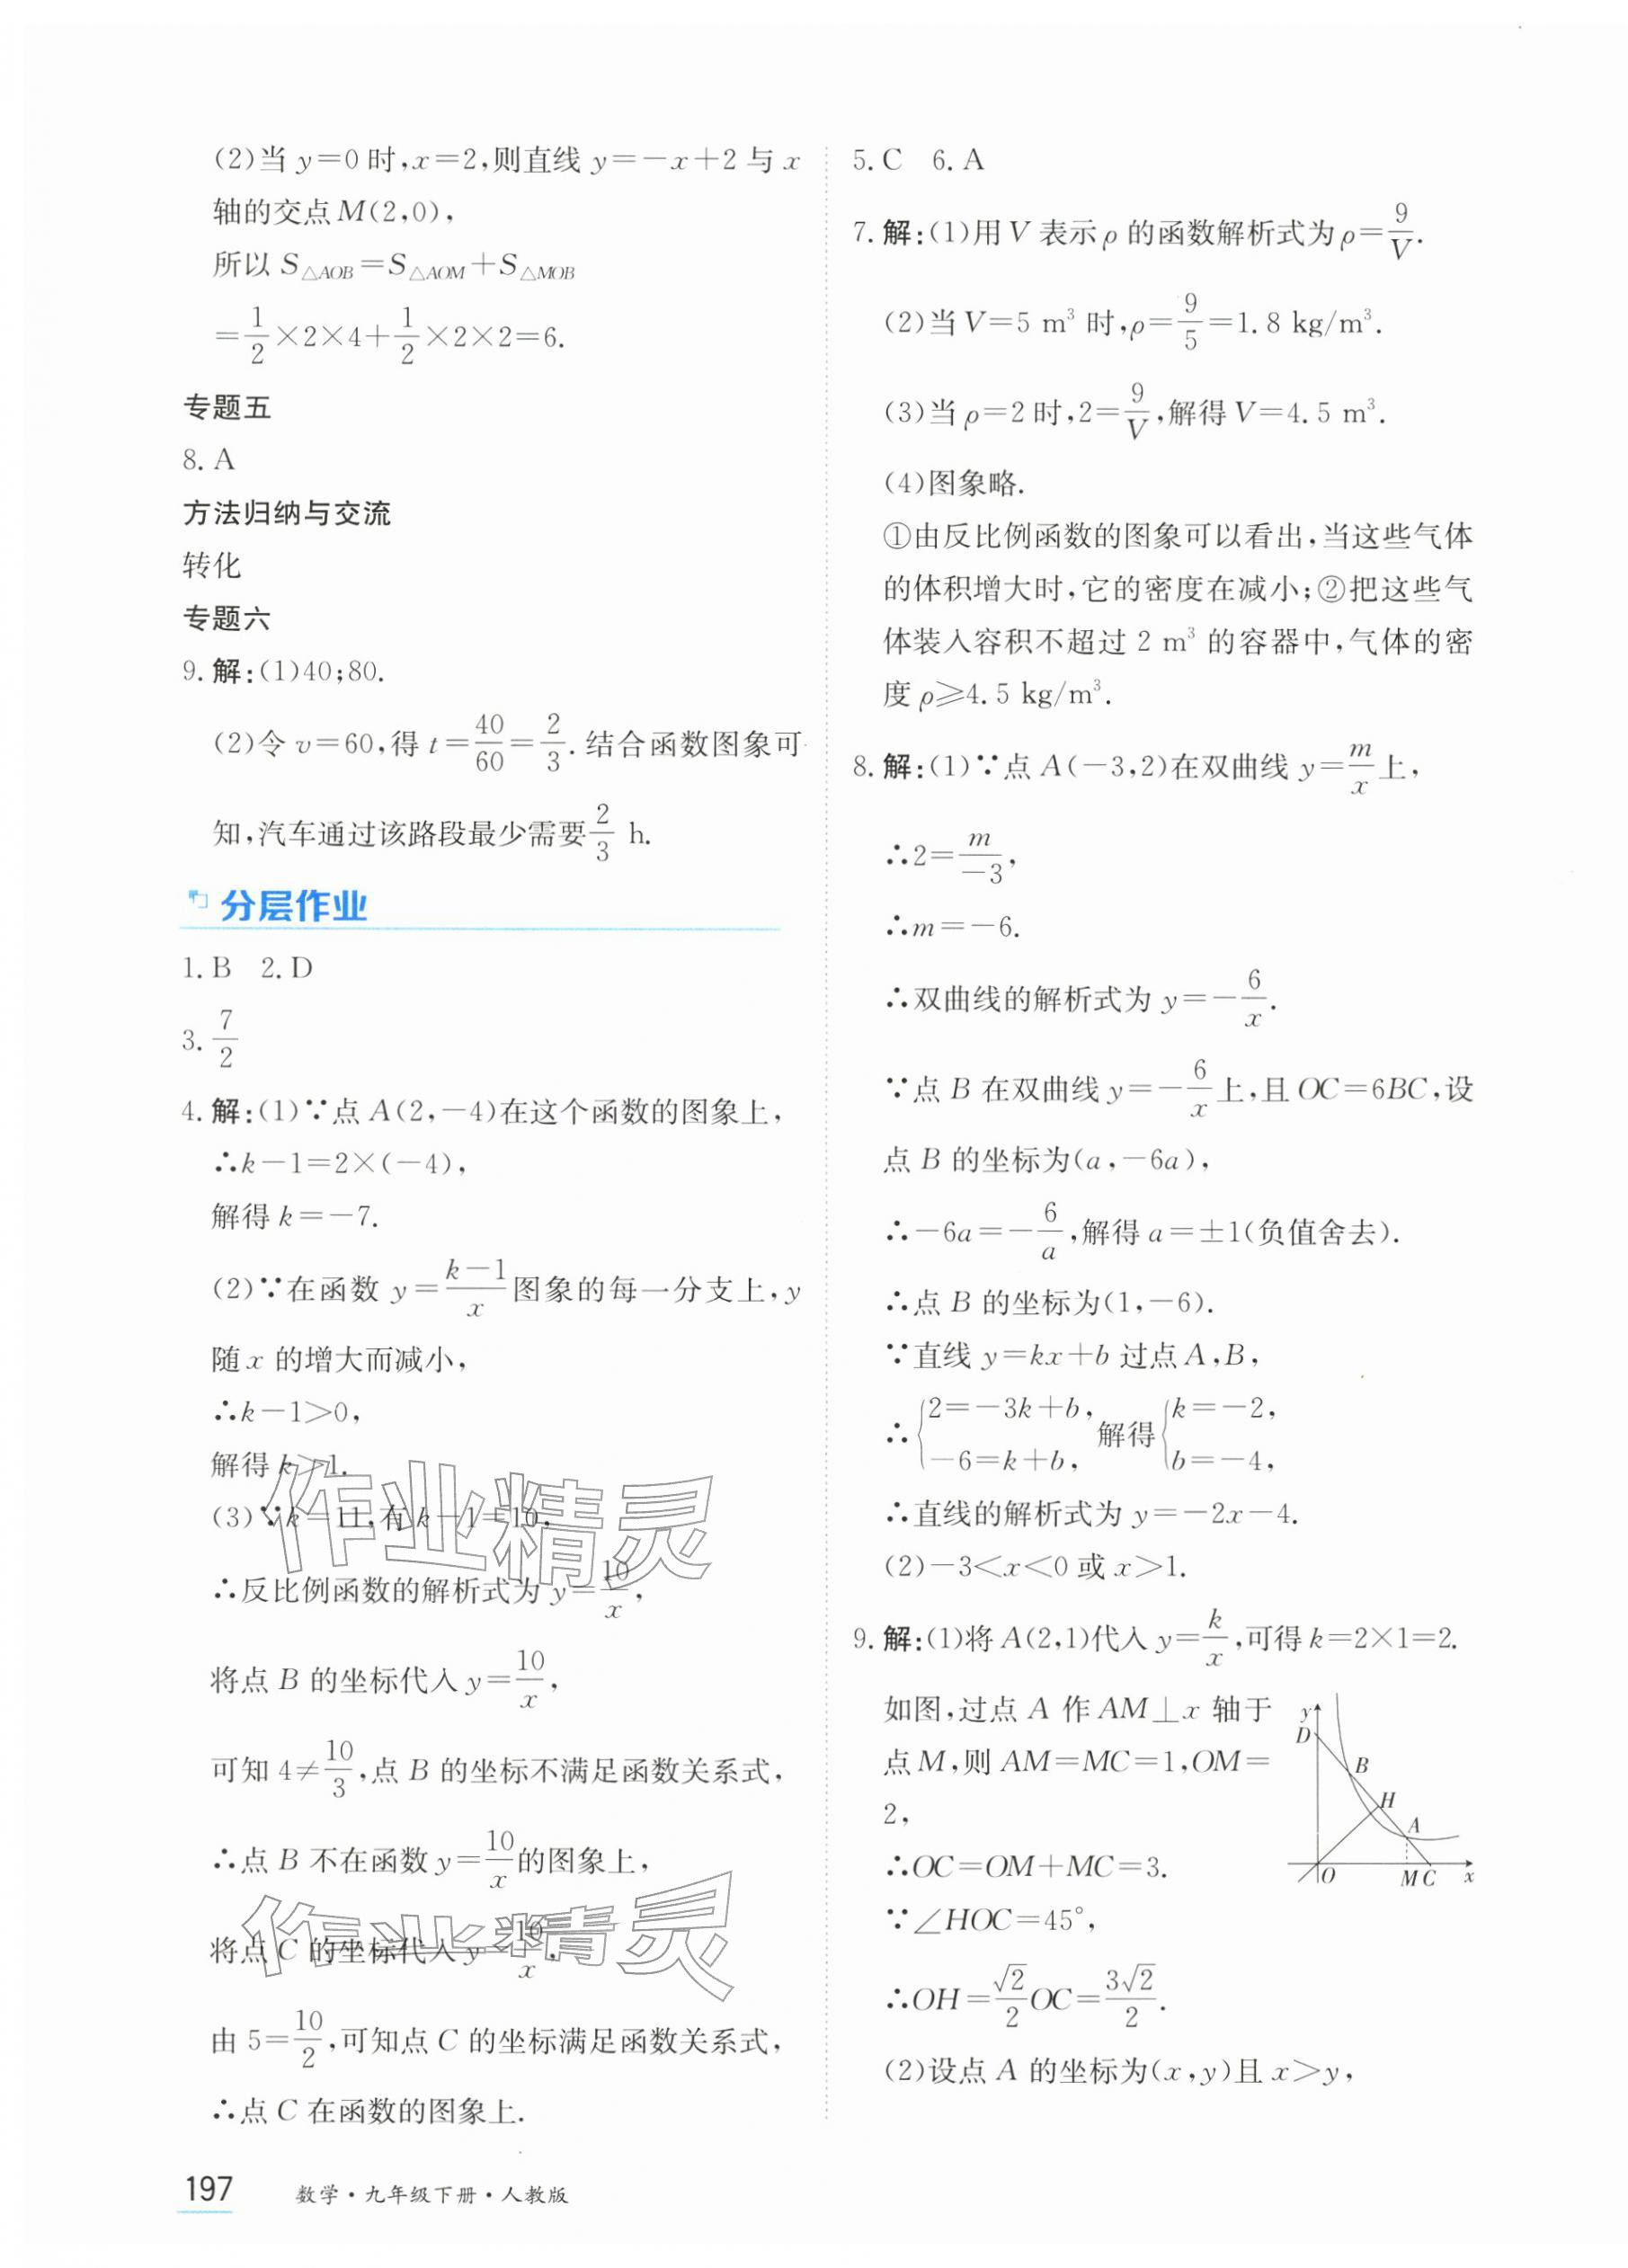 (2)当 y=0 时,x=2,则直线 y=-x+2 与 x
轴的交点 M(2,0),
所以 S△AOB=S△AOM+S△MOB
=1/2×2×4+1/2×2×2=6.
专题五
8. A
方法归纳与交流
转化
专题六
9. 解:(1)40;80.
(2)令 v=60,得 t=40/60=2/3. 结合函数图象可
知,汽车通过该路段最少需要 2/3 h.
分层作业
1. B 2. D
3. 7/2
4. 解:(1)∵点 A(2,-4)在这个函数的图象上,
∴k-1=2×(-4),
解得 k=-7.
(2)∵在函数 y=(k-1)/x 图象的每一分支上,y
随 x 的增大而减小,
∴k-1>0,
解得 k>1.
(3)∵k=11,有 k-1=10,
∴反比例函数的解析式为 y=10/x,
将点 B 的坐标代入 y=10/x,
可知 4≠10/3,点 B 的坐标不满足函数关系式,
∴点 B 不在函数 y=10/x 的图象上,
将点 C 的坐标代入 y=10/x,
由 5=10/2,可知点 C 的坐标满足函数关系式,
∴点 C 在函数的图象上.
5. C 6. A
7. 解:(1)用 V 表示 ρ 的函数解析式为 ρ=9/V.
(2)当 V=5 m³ 时,ρ=9/5=1.8 kg/m³.
(3)当 ρ=2 时,2=9/V,解得 V=4.5 m³.
(4)图象略.
①由反比例函数的图象可以看出,当这些气体
的体积增大时,它的密度在减小;②把这些气
体装入容积不超过 2 m³ 的容器中,气体的密
度 ρ≥4.5 kg/m³.
8. 解:(1)∵点 A(-3,2)在双曲线 y=m/x 上,
∴2=m/-3,
∴m=-6.
∴双曲线的解析式为 y=-6/x.
∵点 B 在双曲线 y=-6/x 上,且 OC=6BC,设
点 B 的坐标为(a,-6a),
∴-6a=-6/a,解得 a=±1(负值舍去).
∴点 B 的坐标为(1,-6).
∵直线 y=kx+b 过点 A,B,
∴{2=-3k+b, -6=k+b, 解得{k=-2, b=-4,
∴直线的解析式为 y=-2x-4.
(2)-3<x<0 或 x>1.
9. 解:(1)将 A(2,1)代入 y=k/x,可得 k=2×1=2.
如图,过点 A 作 AM⊥x 轴于
点 M,则 AM=MC=1,OM=
2,
∴OC=OM+MC=3.
∵∠HOC=45°,
∴OH=√2/2 OC=3√2/2.
(2)设点 A 的坐标为(x,y)且 x>y,
y
D
B
H
A
O
M C
x
作业精灵
作业精灵
197
数学·九年级下册·人教版